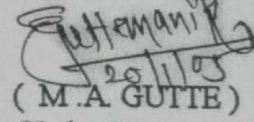 Guttemanik
20/1/05
( M.A. GUTTE )